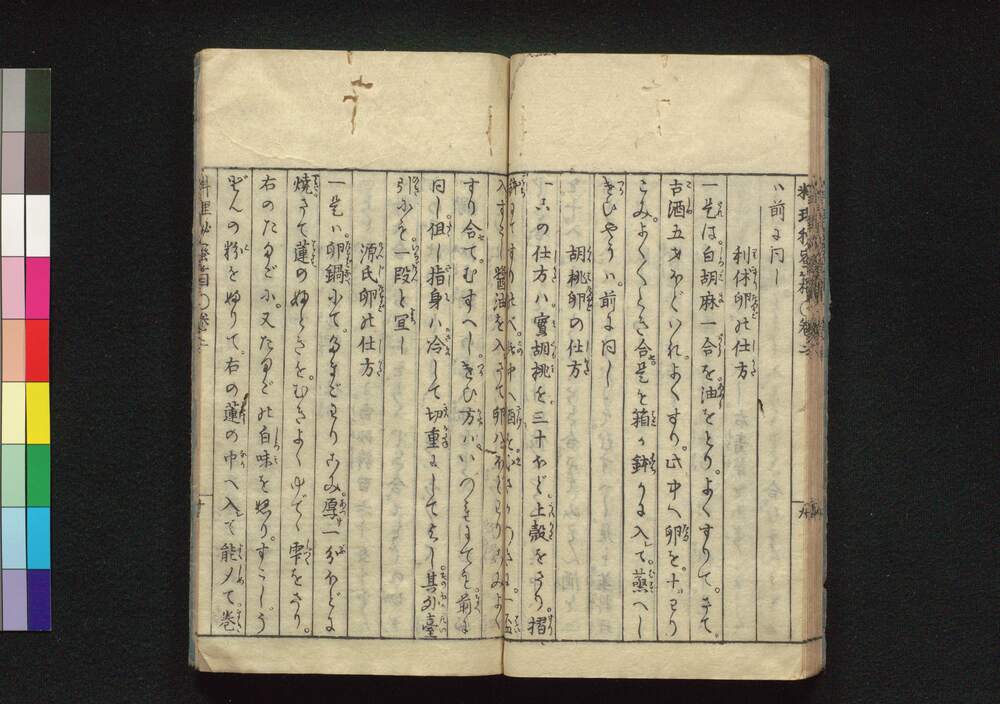 料理秘密箱 巻之
ハ前に同し
利休卵の仕方
一是は白胡麻一合を油をとり。よくすりて。さて。
古酒五才ほどいれ。よくすり。此中へ卵を。十。わり
こみ。よく〳〵とき合是を箱か鉢かに入て。蒸へし
きひやうハ。前に同し
胡桃卵の仕方
一この仕方ハ實胡桃を三十ほど上殻をさり。摺
入すこし醤油を入さて卵
すり合て。むすへし。きひ方ハ。いつれにても前に
同し但し指身ハ冷して切重にしてよし。其外臺
引に一段と宜し
源氏卵の仕方
一是ハ。卵鍋にて。たまごわりこみ。厚一分ほどに
焼さて蓮のふときを。むきよくゆでて雫をさり。
右のたまごに。又たまごの白味を塗り。すこしう
どんの粉をふりて。右の蓮の中へ入て能〆て巻
料理